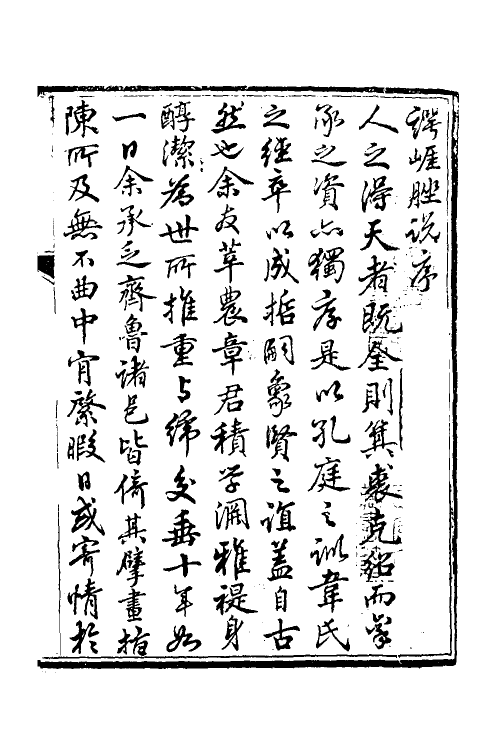 諤崖脞説序
人之得天者既全則箕裘克紹而家
承之資亦獨厚是以孔庭之訓韋氏
之經卒以成哲嗣象賢之誼蓋自古
然也余友莘農章君積学淵雅禔身
醇潔為世所推重与締交垂十年如
一日余承乏齊魯諸邑皆倚其擘畫指
陳所及無不曲中肯綮暇日或寄情於